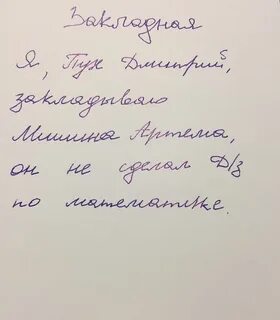 Закладная
Я, Пух Дмитрий,
закладываю
Мишина Артема,
он не сделал Д/з
по математике.